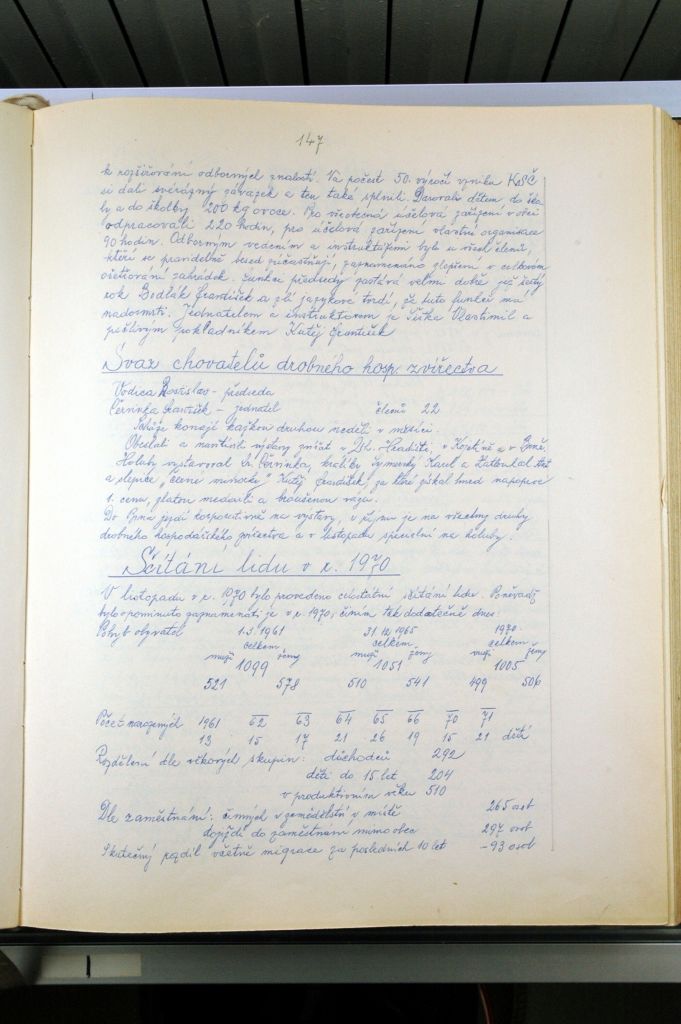 147
k rozšiřování odborných znalostí. Na počest 50. výročí vzniku KSČ
si dali svérázný závazek a ten také splnili. Darovali dětem do ško-
ly a do školky 200 kg ovoce. Pro všeobecná účelová zařízení v obci
odpracovali 220 hodin, pro účelová zařízení vlastní organisace
90 hodin. Odborným vedením a instruktážemi bylo u všech členů,
kteří se pravidelně besed zúčastňují, zaznamenáno zlepšení v celkovém
ošetřování zahrádek. Funkci předsedy zastává velmi dobře již šestý
rok Bedlák František a zlí jazykové tvrdí, že tuto funkci má
nadosmrti. Jednatelem a instruktorem je Vlastimil a
pečlivým pokladníkem Kutěj František
Svaz chovatelů drobného hosp. zvířectva
Vodica Rostislav - předseda
Červinka František - jednatel členů 22
Schůze konají každou druhou neděli v měsíci.
Obeslali a navštívili výstavy zvířat v Uh. Hradišti, v Kojetíně a v Brně.
Holuby vystavoval Fr. Červinka, králíky Karel a
a slepice „černé minorky" Kutěj František, za které získal hned napoprvé
1. cenu, zlatou medaili a broušenou vázu.
Do Brna jezdí korporativně na výstavy, v říjnu je na všechny druhy
drobného hospodářského zvířectva a v listopadu speciální na holuby.
Sčítání lidu v r. 1970
V listopadu v r. 1970 bylo provedeno celostátní sčítání lidu. Poněvadž
bylo opominuto zaznamenati je v r. 1970, činím tak dodatečně dnes:
Pohyb obyvatel 1.3.1961 31.12.1965 1970
celkem celkem celkem
muži ženy muži ženy muži ženy
1099 1051 1005
521 578 510 541 499 506
Počet narozených 1961 62 63 64 65 66 70 71
13 15 17 21 26 19 15 21 dětí
Rozdělení dle věkových skupin: důchodců 292
dětí do 15 let 204
v produktivním věku 510
Dle zaměstnání: činných v zemědělství v místě 265 osob
dojíždí do zaměstnání mimo obec 297 osob
Skutečný rozdíl včetně migrace za posledních 10 let -93 osob